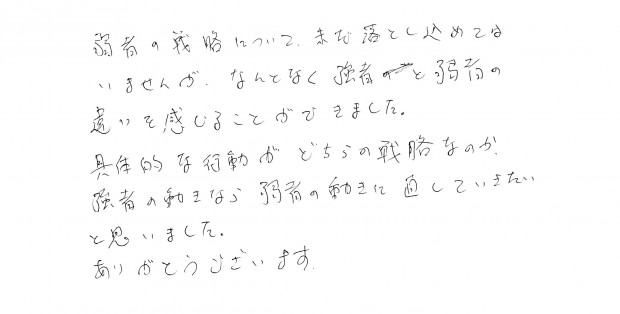 弱者の戦略について、まだ落とし込めては
いませんが、なんとなく強者と弱者の
違いを感じることができました。
具体的な行動がどちらの戦略なのか、
強者の動きなら弱者の動きに直していきたい
と思いました。
ありがとうございます。